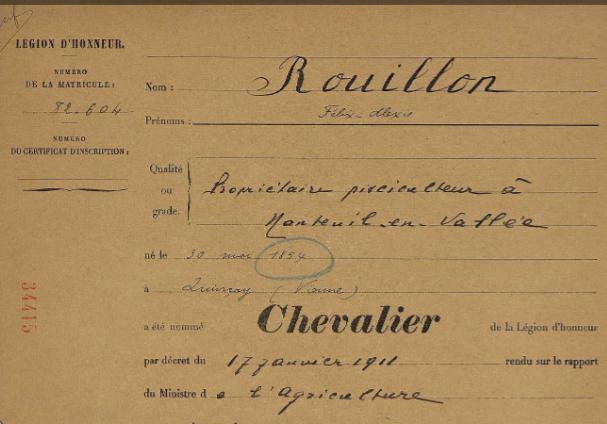 LÉGION D'HONNEUR.
NUMÉRO
DE LA MATRICULE :
82.604
NUMÉRO
DU CERTIFICAT D'INSCRIPTION :
Nom : Rouillon
Prénoms : Félix-Alexis
Qualité
ou
grade.
Propriétaire pisciculteur à
Nanteuil-en-Vallée
né le 30 mai 1854
à Quinçay (Vienne)
a été nommé Chevalier de la Légion d'honneur
par décret du 17 janvier 1911 rendu sur le rapport
du Ministre de l'Agriculture
34415